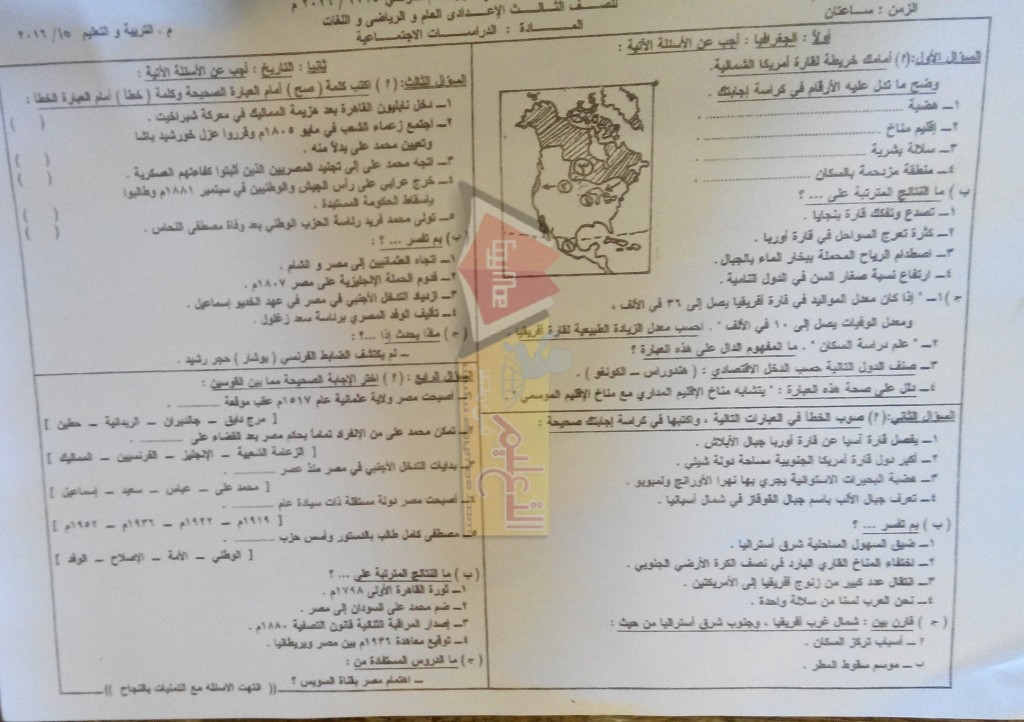 للصف الثالث الإعدادى العام و الرياضى و اللغات
الزمن : ساعتان
المادة : الدراسات الاجتماعية
م . التربية و التعليم ١٥ / ٢٠١٦
أولاً : الجغرافيا : أجب عن الأسئلة الآتية :
السؤال الأول: (٢) أمامك خريطة لقارة أمريكا الشمالية.
وضح ما تدل عليه الأرقام في كراسة إجابتك .
١ــ هضبة ..........
٢ــ إقليم مناخ ..........
٣ــ سلالة بشرية ..........
٤ــ منطقة مزدحمة بالسكان ..........
ب ) ما النتائج المترتبة على ... ؟
١ــ تصدع وتفكك قارة بنجايا .
٢ــ كثرة تعرج السواحل في قارة أوربا .
٣ــ اصطدام الرياح المحملة ببخار الماء بالجبال .
٤ــ ارتفاع نسبة صغار السن في الدول النامية .
ج )١ــ " إذا كان معدل المواليد في قارة أفريقيا يصل إلى ٣٦ في الألف ،
ومعدل الوفيات يصل إلى ١٠ في الألف " . احسب معدل الزيادة الطبيعية لقارة أفريقيا .
٢ــ " علم دراسة السكان " . ما المفهوم الدال على هذه العبارة ؟
٣ــ صنف الدول التالية حسب الدخل الاقتصادي : ( هندوراس ــ الكونغو ) .
٤ــ دلل على صحة هذه العبارة : " يتشابه مناخ الإقليم المداري مع مناخ الإقليم الموسمي "
السؤال الثاني: (٢) صوب الخطأ في العبارات التالية ، واكتبها في كراسة إجابتك صحيحة :
١ــ يفصل قارة آسيا عن قارة أوربا جبال الأبلاش .
٢ــ أكبر دول قارة أمريكا الجنوبية مساحة دولة شيلي .
٣ــ هضبة البحيرات الاستوائية يجري بها نهرا الأورانج ولمبوبو .
٤ــ تعرف جبال الألب باسم جبال القوقاز في شمال أسبانيا .
( ب ) بم تفسر ... ؟
١ــ ضيق السهول الساحلية شرق أستراليا .
٢ــ اختفاء المناخ القاري البارد في نصف الكرة الأرضي الجنوبي .
٣ــ انتقال عدد كبير من زنوج أفريقيا إلى الأمريكتين .
٤ــ نحن العرب لسنا من سلالة واحدة .
( ج ) قارن بين : شمال غرب أفريقيا ، وجنوب شرق أستراليا من حيث :
٢ ــ أسباب تركز السكان .
ب ــ موسم سقوط المطر .
ثانيا : التاريخ : أجب عن الأسئلة الآتية :
السؤال الثالث: ( ٢ ) اكتب كلمة ( صح ) أمام العبارة الصحيحة وكلمة ( خطأ ) أمام العبارة الخطأ :
١ــ دخل نابليون القاهرة بعد هزيمة المماليك في معركة شبراخيت . ( )
٢ــ اجتمع زعماء الشعب في مايو ١٨٠٥م وقرروا عزل خورشيد باشا
وتعيين محمد على بدلاً منه . ( )
٣ــ اتجه محمد على إلى تجنيد المصريين الذين أثبتوا كفاءتهم العسكرية . ( )
٤ــ خرج عرابي على رأس الجيش والوطنيين في سبتمبر ١٨٨١م وطالبوا
بإسقاط الحكومة المستبدة . ( )
٥ــ تولى محمد فريد رئاسة الحزب الوطني بعد وفاة مصطفى النحاس . ( )
(ب) بم تفسر ... ؟ :
١ــ اتجاه العثمانيين إلى مصر و الشام .
٢ــ قدوم الحملة الإنجليزية على مصر ١٨٠٧م .
٣ــ ازدياد التدخل الأجنبي في مصر في عهد الخديو إسماعيل .
٤ــ تأليف الوفد المصري برئاسة سعد زغلول .
( ج ) ماذا يحدث إذا ...؟ :
ــ لم يكتشف الضابط الفرنسي ( بوشار ) حجر رشيد .
السؤال الرابع : ( ٢ ) اختر الإجابة الصحيحة مما بين القوسين :
١ــ أصبحت مصر ولاية عثمانية عام ١٥١٧م عقب موقعة ..........
[ مرج دابق ــ جالديران ــ الريدانية ــ حطين ]
٢ــ تمكن محمد على من الإنفراد تماماً بحكم مصر بعد القضاء على ..........
[ الزعامة الشعبية ــ الإنجليز ــ الفرنسيين ــ المماليك ]
٣ــ بدايات التدخل الأجنبي في مصر منذ عصر ..........
[ محمد على ــ عباس ــ سعيد ــ إسماعيل ]
٤ــ أصبحت مصر دولة مستقلة ذات سيادة عام ..........
[ ١٩١٩م ــ ١٩٢٢م ــ ١٩٣٦م ــ ١٩٥٢م ]
٥ــ مصطفى كامل طالب بالدستور وأسس حزب ..........
[ الوطني ــ الأمة ــ الإصلاح ــ الوفد ]
( ب ) ما النتائج المترتبة على ... ؟
١ــ ثورة القاهرة الأولى ١٧٩٨م .
٢ــ ضم محمد على السودان إلى مصر .
٣ــ إصدار المراقبة الثنائية قانون التصفية ١٨٨٠م .
٤ــ توقيع معاهدة ١٩٣٦م بين مصر وبريطانيا .
(ج) ما الدروس المستفادة من :
ــ اهتمام مصر بقناة السويس ؟
(( انتهت الاسئلة مع التمنيات بالنجاح ))
التعليم